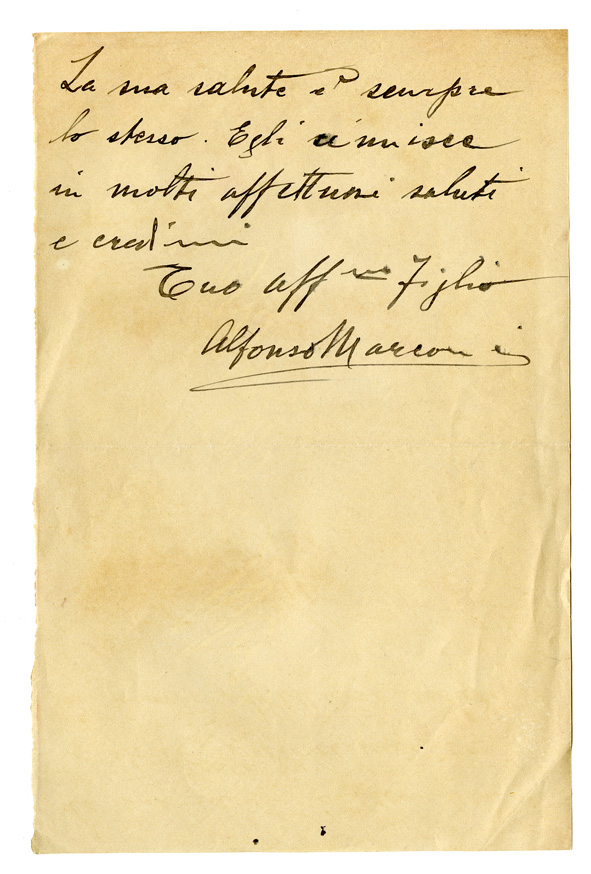 La sua salute è sempre
lo stesso. Egli si unisce
in molti affettuosi saluti
e credimi
Tuo aff mo Figlio
Alfonso Marconi